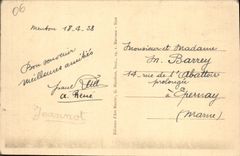 06
Menton 18.4.38
Bon souvenir
meilleures amitiés
a. René
Jeannot
Monsieur et Madame
M. Barrey
14 rue de l'Abattoir
prolongée
à Épernay
(Marne)